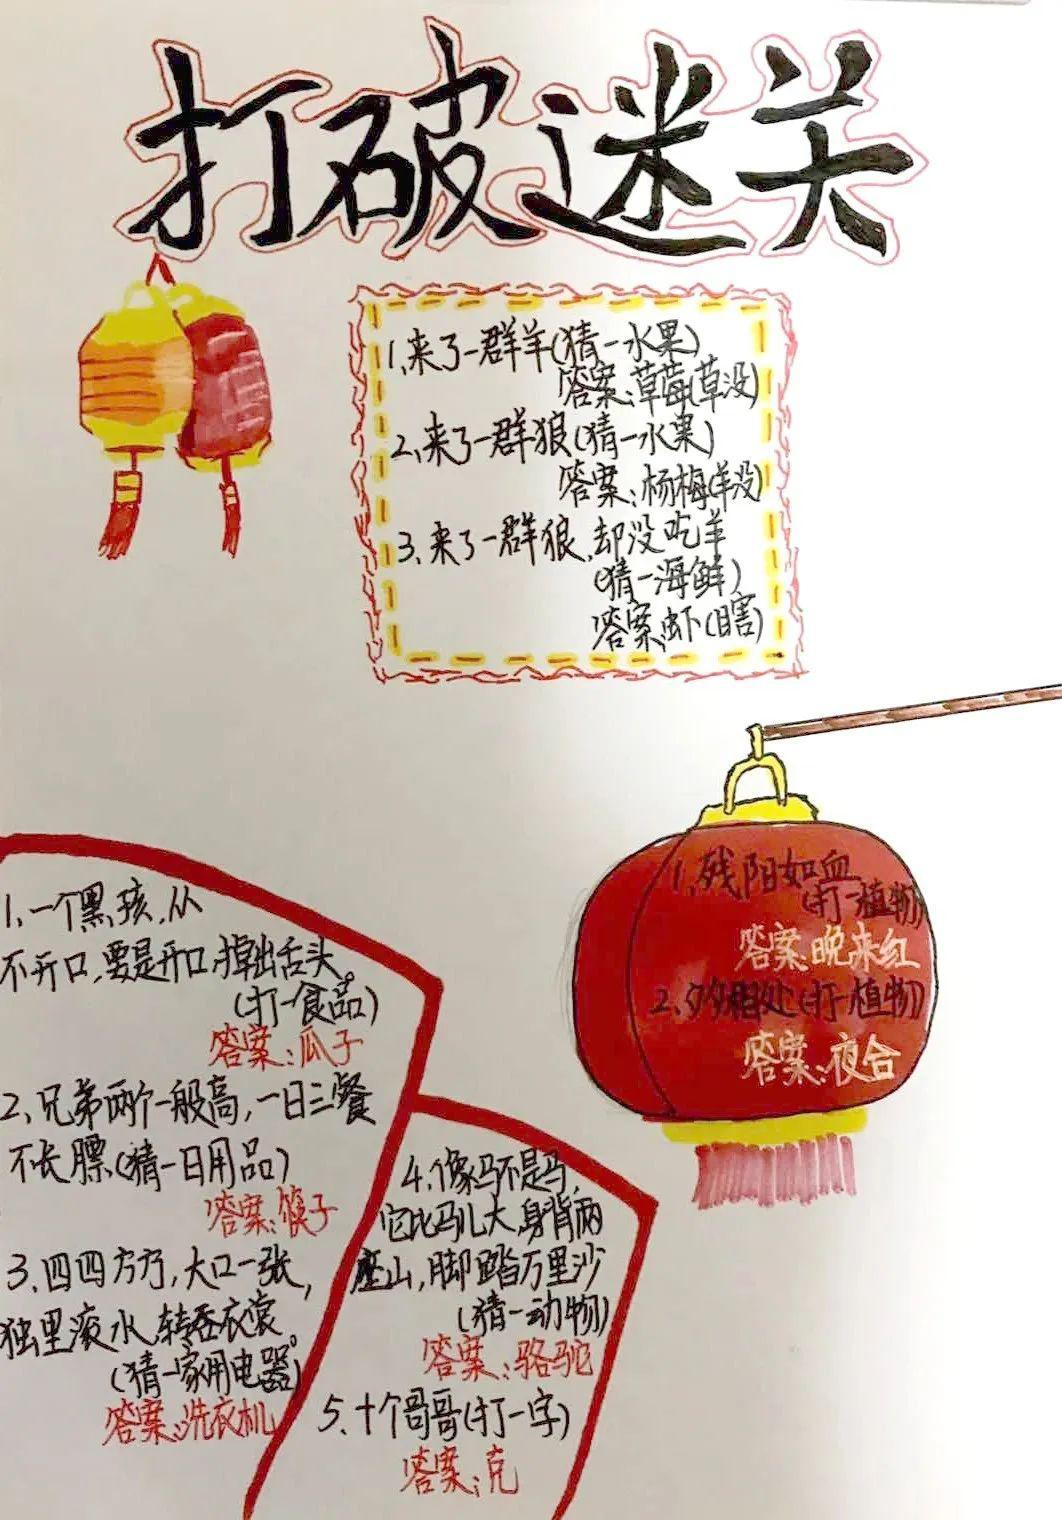 打破迷关
1、来了一群羊(猜一水果)
答案:草莓(草没)
2、来了一群狼(猜一水果)
答案:杨梅(羊没)
3、来了一群狼,却没吃羊
(猜一海鲜)
答案:虾(瞎)
1、残阳如血
(打一植物)
答案:晚来红
2、夕夕相处(打一植物)
答案:夜合
1、一个黑孩,从
不开口,要是开口,掉出舌头。
(打一食品)
答案:瓜子
2、兄弟两个一般高,一日三餐
不长膘(猜一日用品)
答案:筷子
3、四四方方,大口一张,
独里滚水,转吞衣裳。
(猜一家用电器)
答案:洗衣机
4、像马不是马,
它比马儿大,身背两
座山,脚踏万里沙
(猜一动物)
答案:骆驼
5、十个哥哥(打一字)
答案:克